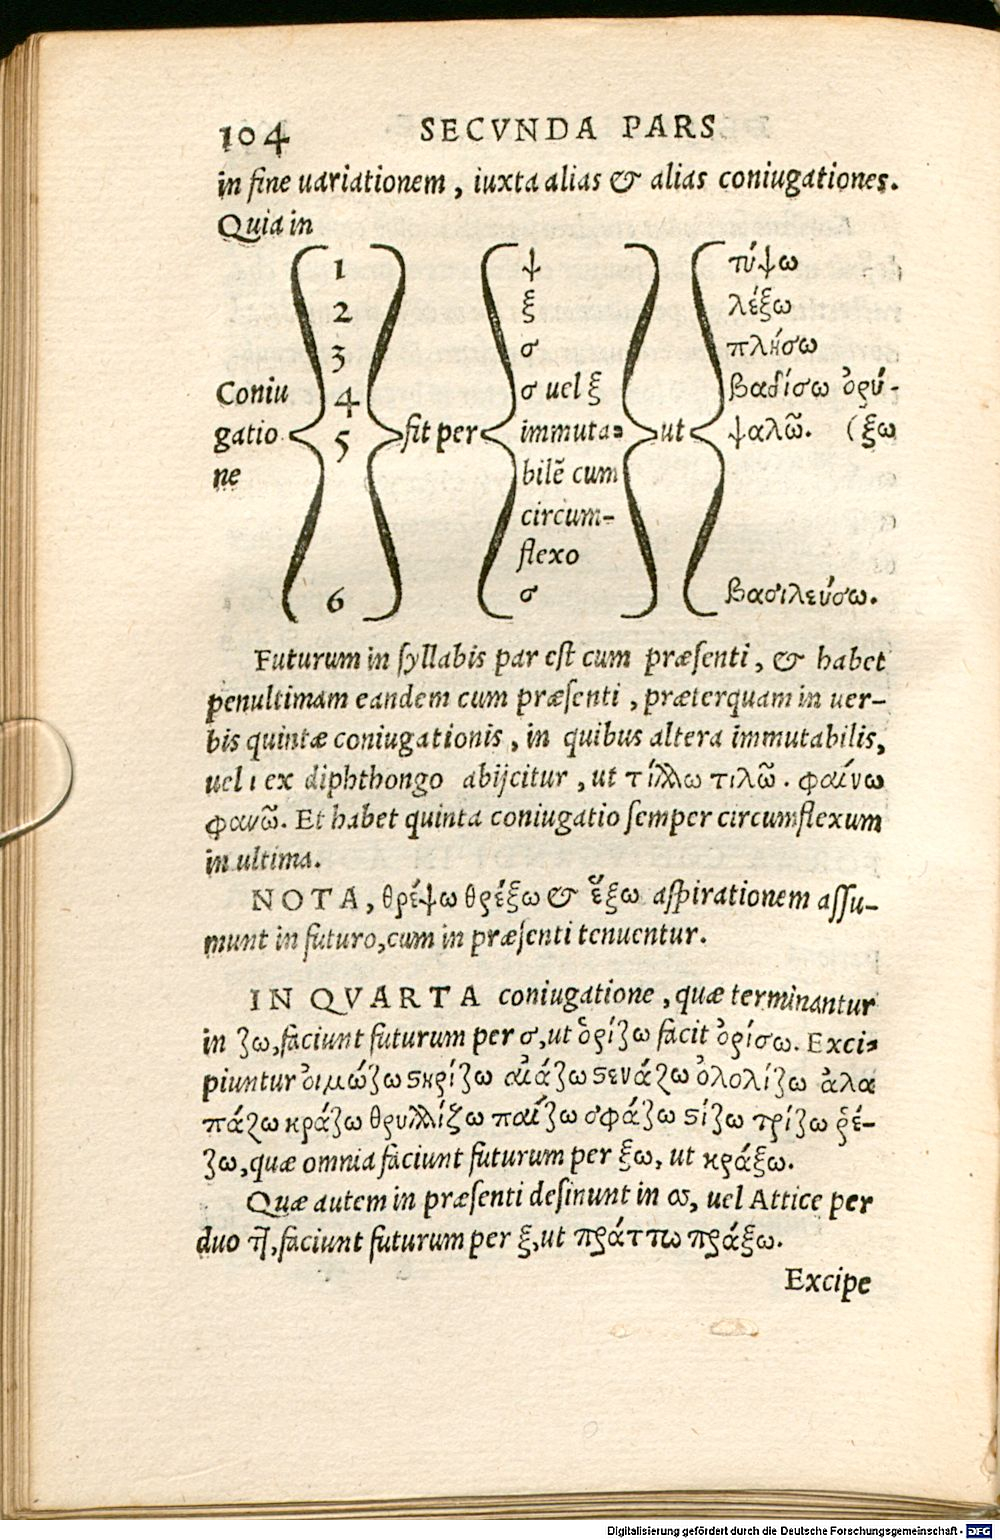 104 SECVNDA PARS
in fine uariationem, iuxta alias & alias coniugationes.
Quia in
1 ψ τύψω
2 ξ λέξω
3 σ πλήσω
Coniu 4 σ uel ξ βαδίσω ὀρύ-
gatio 5 fit per immuta- ut ψαλῶ. (ξω
ne bilē cum
circum-
flexo
6 σ βασιλεύσω.
Futurum in syllabis par est cum præsenti, & habet
penultimam eandem cum præsenti, præterquam in uer-
bis quintæ coniugationis, in quibus altera immutabilis,
uel ι ex diphthongo abijcitur, ut τίλλω τιλῶ. φαίνω
φανῶ. Et habet quinta coniugatio semper circumflexum
in ultima.
NOTA, θρέψω θρέξω & ἕξω aspirationem assu-
munt in futuro, cum in præsenti tenuentur.
IN QVARTA coniugatione, quæ terminantur
in ζω, faciunt futurum per σ, ut ὁρίζω facit ὁρίσω. Exci-
piuntur οἰμώζω στηρίζω αἰάζω στενάζω ὀλολίζω ἀλα
πάζω κράζω θρυλλίζω παίζω σφάζω στίζω τρίζω ῥέ-
ζω, quæ omnia faciunt futurum per ξω, ut κράξω.
Quæ autem in præsenti desinunt in σσ, uel Attice per
duo τῆ, faciunt futurum per ξ, ut πράττω πράξω.
Excipe
Digitalisierung gefördert durch die Deutsche Forschungsgemeinschaft - DFG